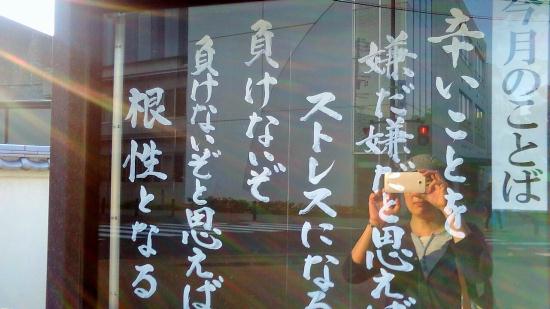 今月のことば
辛いことを
嫌だ嫌だと思えば
ストレスになる
負けないぞ
負けないぞと思えば
根性となる